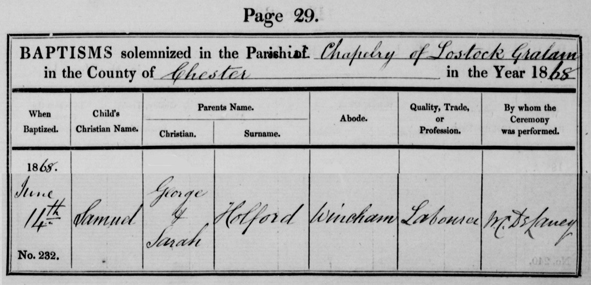 Page 29.
BAPTISMS solemnized in the Parochial Chapelry of Lostock Gralam
in the County of Chester in the Year 1868
When
Baptized.
Child's
Christian Name.
Parents Name.
Christian.
Surname.
Abode.
Quality, Trade,
or
Profession.
By whom the
Ceremony
was performed.
1868.
June
14th
No. 232.
Samuel
George
&
Sarah
Holford
Wincham
Labourer